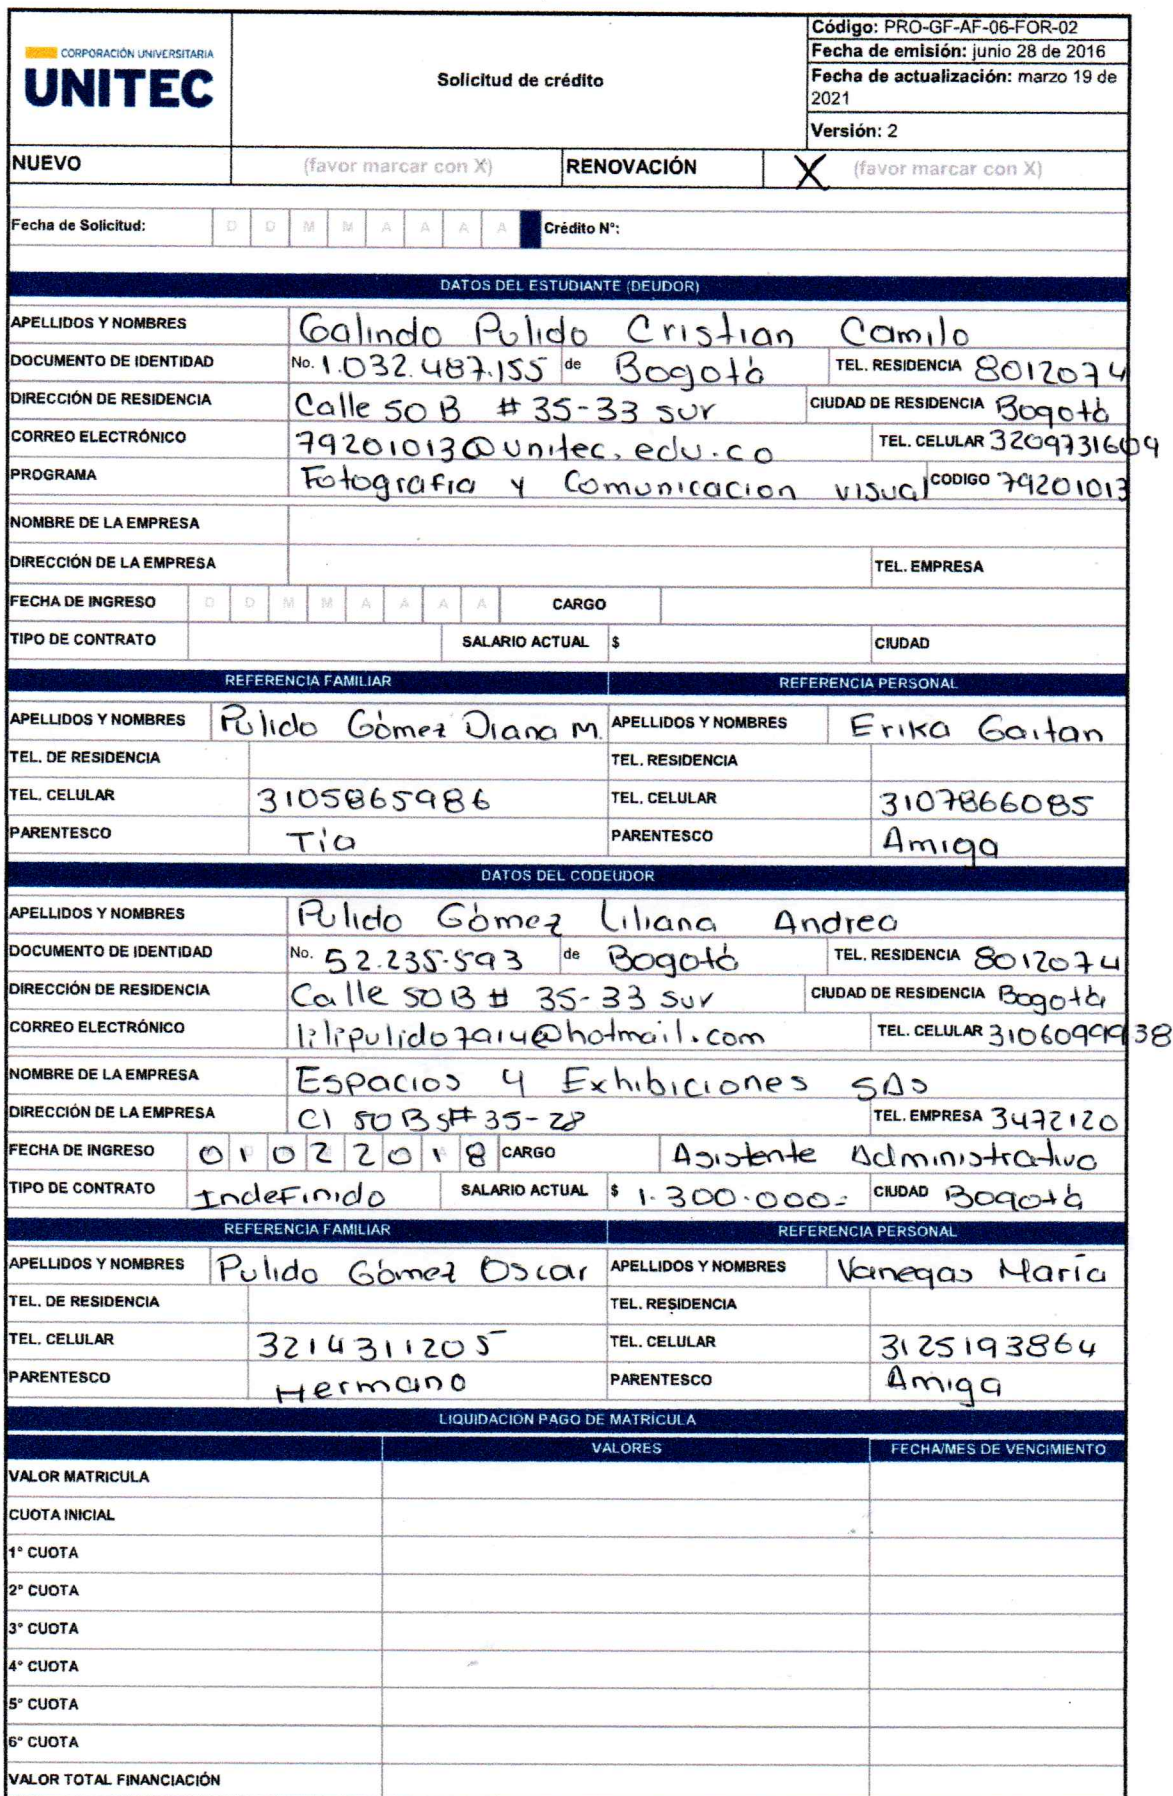 CORPORACIÓN UNIVERSITARIA
UNITEC
Solicitud de crédito
Código: PRO-GF-AF-06-FOR-02
Fecha de emisión: junio 28 de 2016
Fecha de actualización: marzo 19 de
2021
Versión: 2
NUEVO (favor marcar con X) RENOVACIÓN X (favor marcar con X)
Fecha de Solicitud: D D M M A A A A Crédito N°:
DATOS DEL ESTUDIANTE (DEUDOR)
APELLIDOS Y NOMBRES Galindo Pulido Cristian Camilo
DOCUMENTO DE IDENTIDAD No. 1.032.487.155 de Bogotá TEL. RESIDENCIA 8012074
DIRECCIÓN DE RESIDENCIA Calle 50 B # 35-33 sur CIUDAD DE RESIDENCIA Bogotá
CORREO ELECTRÓNICO 79201013@unitec.edu.co TEL. CELULAR 3209731609
PROGRAMA Fotografia y Comunicacion visual CODIGO 79201013
NOMBRE DE LA EMPRESA
DIRECCIÓN DE LA EMPRESA TEL. EMPRESA
FECHA DE INGRESO D D M M A A A A CARGO
TIPO DE CONTRATO SALARIO ACTUAL $ CIUDAD
REFERENCIA FAMILIAR REFERENCIA PERSONAL
APELLIDOS Y NOMBRES Pulido Gómez Diana M. APELLIDOS Y NOMBRES Erika Gaitan
TEL. DE RESIDENCIA TEL. RESIDENCIA
TEL. CELULAR 3105865986 TEL. CELULAR 3107866085
PARENTESCO Tía PARENTESCO Amiga
DATOS DEL CODEUDOR
APELLIDOS Y NOMBRES Pulido Gómez Liliana Andrea
DOCUMENTO DE IDENTIDAD No. 52.235.593 de Bogotá TEL. RESIDENCIA 8012074
DIRECCIÓN DE RESIDENCIA Calle 50B # 35-33 sur CIUDAD DE RESIDENCIA Bogotá
CORREO ELECTRÓNICO lilipulido7914@hotmail.com TEL. CELULAR
NOMBRE DE LA EMPRESA Espacios y Exhibiciones SAS
DIRECCIÓN DE LA EMPRESA Cl 50 B S# 35-28 TEL. EMPRESA 3472120
FECHA DE INGRESO 0 1 0 2 2 0 1 8 CARGO Asistente Administrativo
TIPO DE CONTRATO Indefinido SALARIO ACTUAL $ 1.300.000= CIUDAD Bogotá
REFERENCIA FAMILIAR REFERENCIA PERSONAL
APELLIDOS Y NOMBRES Pulido Gómez Oscar APELLIDOS Y NOMBRES Vanegas María
TEL. DE RESIDENCIA TEL. RESIDENCIA
TEL. CELULAR 3214311205 TEL. CELULAR 3125193864
PARENTESCO Hermano PARENTESCO Amiga
LIQUIDACION PAGO DE MATRÍCULA
VALORES FECHA/MES DE VENCIMIENTO
VALOR MATRICULA
CUOTA INICIAL
1° CUOTA
2° CUOTA
3° CUOTA
4° CUOTA
5° CUOTA
6° CUOTA
VALOR TOTAL FINANCIACIÓN